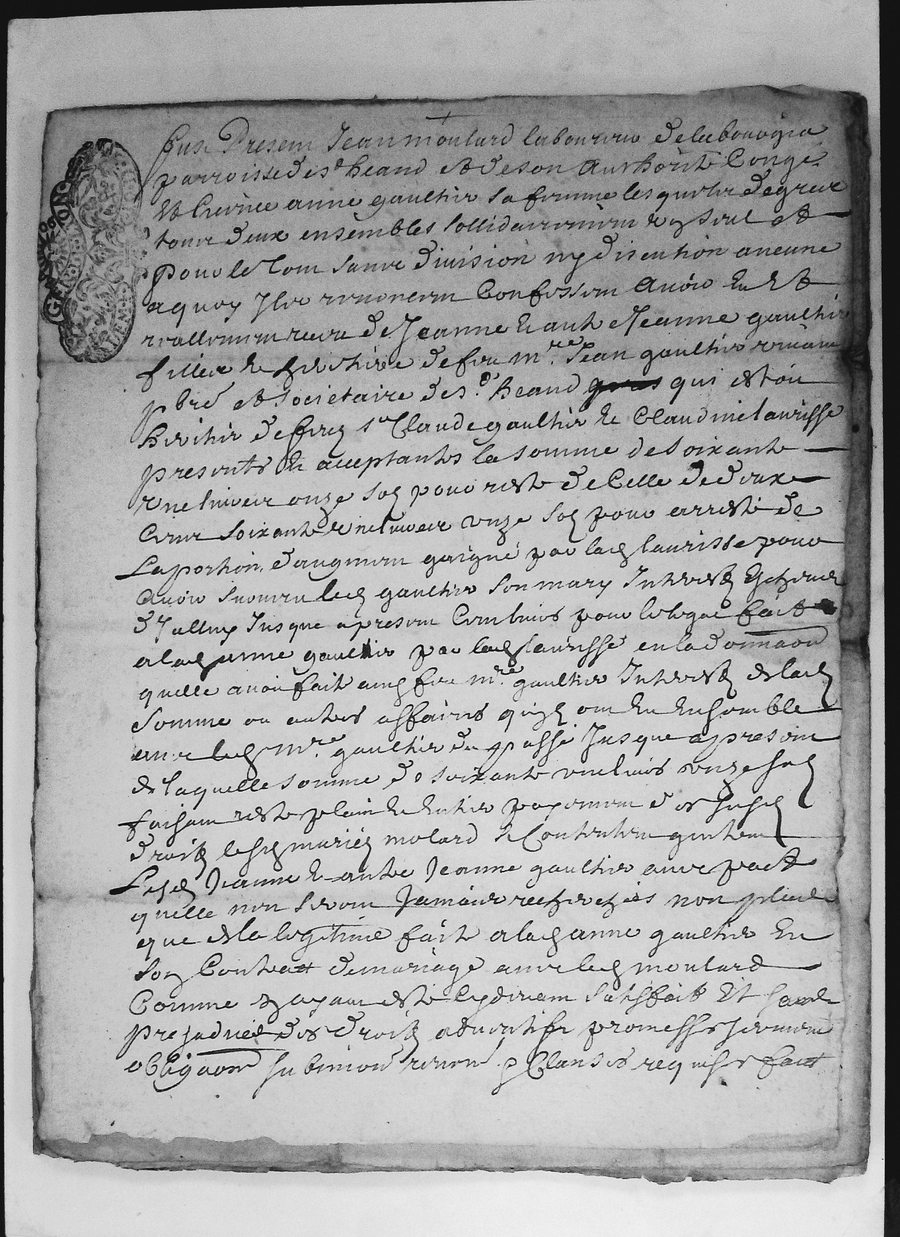 Fust Present Jean moulard laboureur de la bourgia
parroisse de st heand Et de son Authorité Congé
Et licence anne gaultier sa femme lesquels de gré
tous deux ensembles sollidairement Et seul et
pour le tout sans division ny discution aucune
a quoy ils renoncent Confessent Avoir Eu Et
reallement receu de Jeanne Et aut Jeanne gaultier
filles Et heritiere de feu mre Jean gaultier vivant
pbre et sociétaire de st heand qui estoit
heritier de feuz sr Claude gaultier Et Claudine laurisse
presentes Et acceptantes la somme de soixante
une livres onze solz pour reste de Celle de deux
Cent soixante une livres onze solz pour arresté de
La portion d'augment gaigné par lad laurisse pour
Avoir survecu led gaultier son mary Interestz
d'Icelluy Jusque apresent Comprins pour le legat fait
a lad anne gaultier par lad laurisse en la donnaon
quelle avoit fait aud feu mre gaultier Interestz de lad
somme ou autres affaires quilz ont Eu Ensemble
avec led mre gaultier du passé Jusque apresent
de laquelle somme de soixante une livres onze solz
faisant reste plain Et Entier payement des susd
droitz lesd mariez molard se Contentent quittent
Lesd Jeanne Et autre Jeanne gaultier avec pact
quelle non seront Jamais recherchées non plus
que de la legitime fait a lad anne gaultier En
son Contract de mariage avec led moulard
Comme En ayant esté cy devant satisfait Et sans
prejudice des droitz adventifz promesses serment
obligaon submion renon & Clauses requises fait